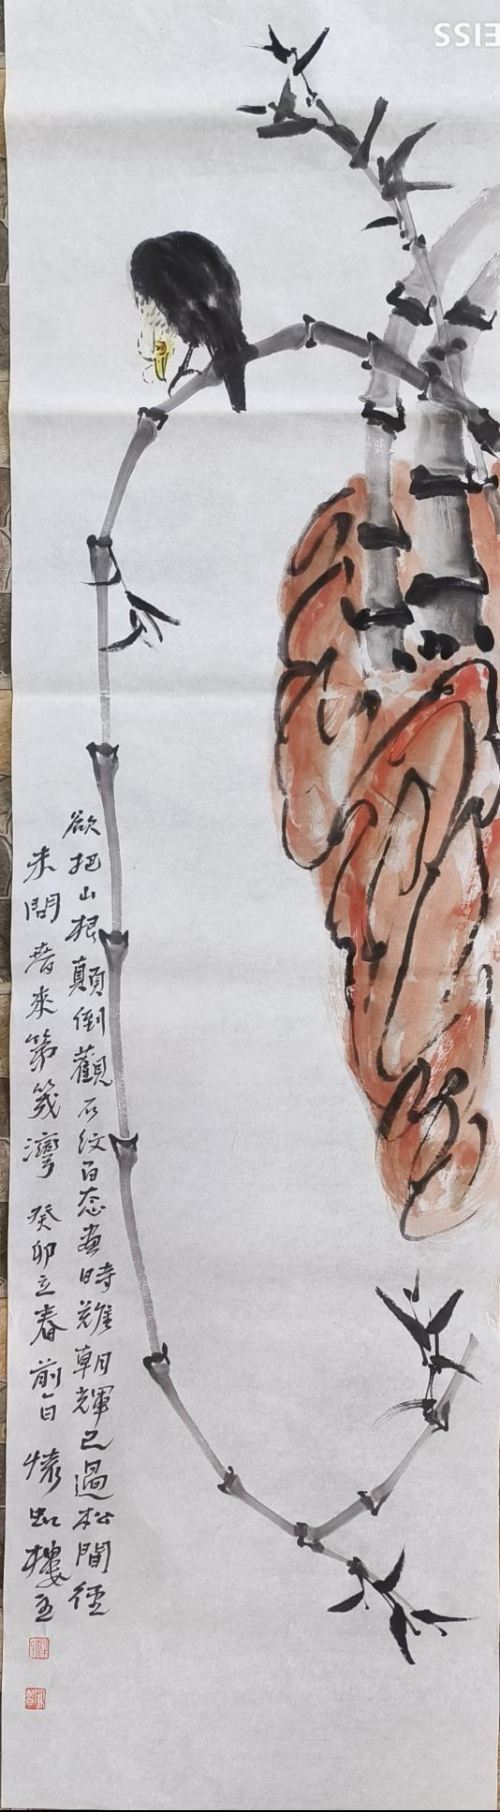 欲把山根顛倒觀石紋百态畫時難朝輝已過松間徑
未問春來第幾灣 癸卯立春前一日 懷虹樓主
EISS